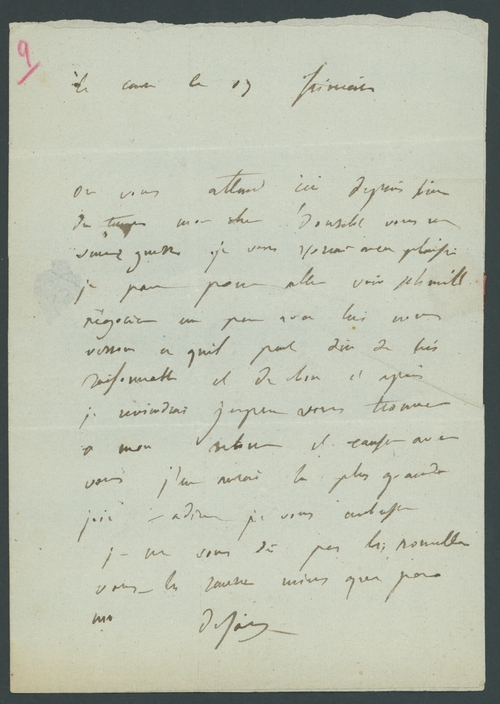 9
le caire le 17 frimaire
on vous attend ici depuis bien
du temps mon cher vous ne
venez guere je vous verrai avec plaisir
je pars pour aller voir schmith
négocier un peu avec lui nous
verrons ce quil peut dire de très
raisonnable et de bon et après
je reviendrai j'espere vous trouver
a mon retour et causer avec
vous j'en aurai la plus grande
joie adieu je vous embrasse
je ne vous dis pas les nouvelles
vous les saurez mieux que par
moi Desaix